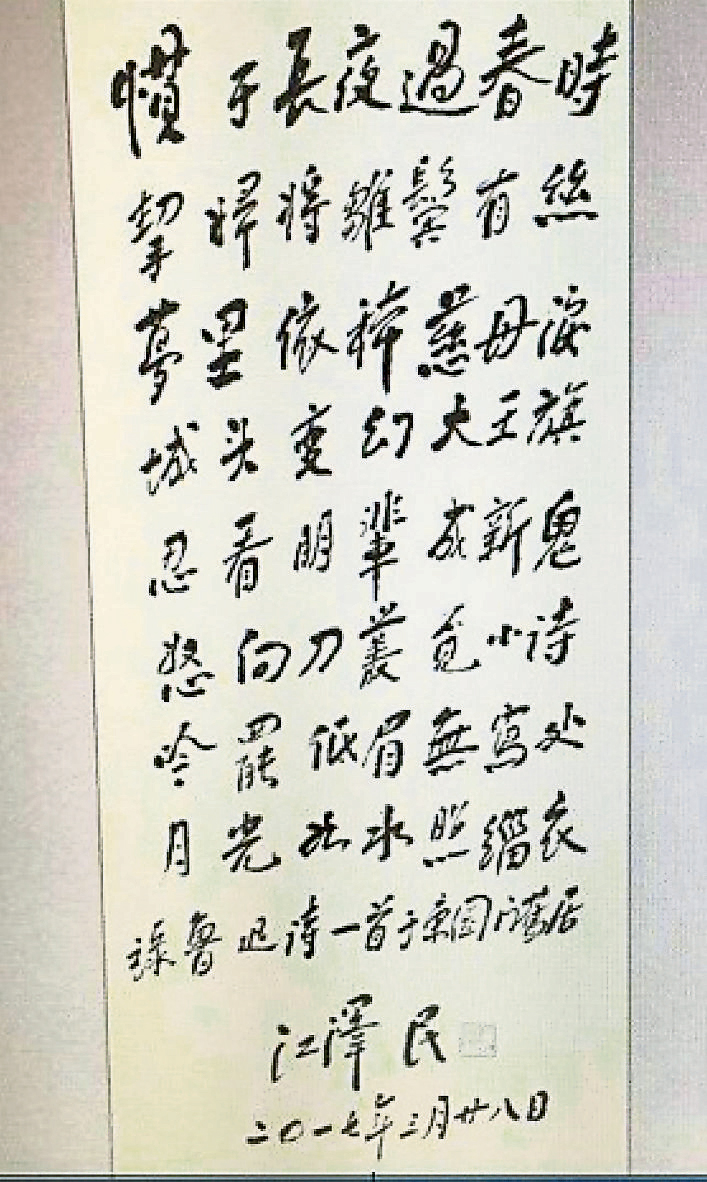 慣于長夜過春時
挈婦將雛鬢有絲
夢里依稀慈母淚
城头变幻大王旗
忍看朋輩成新鬼
怒向刀叢覓小诗
吟罷低眉無寫处
月光如水照緇衣
録魯迅诗一首于東園門舊居
江澤民
二〇一七年三月廿八日